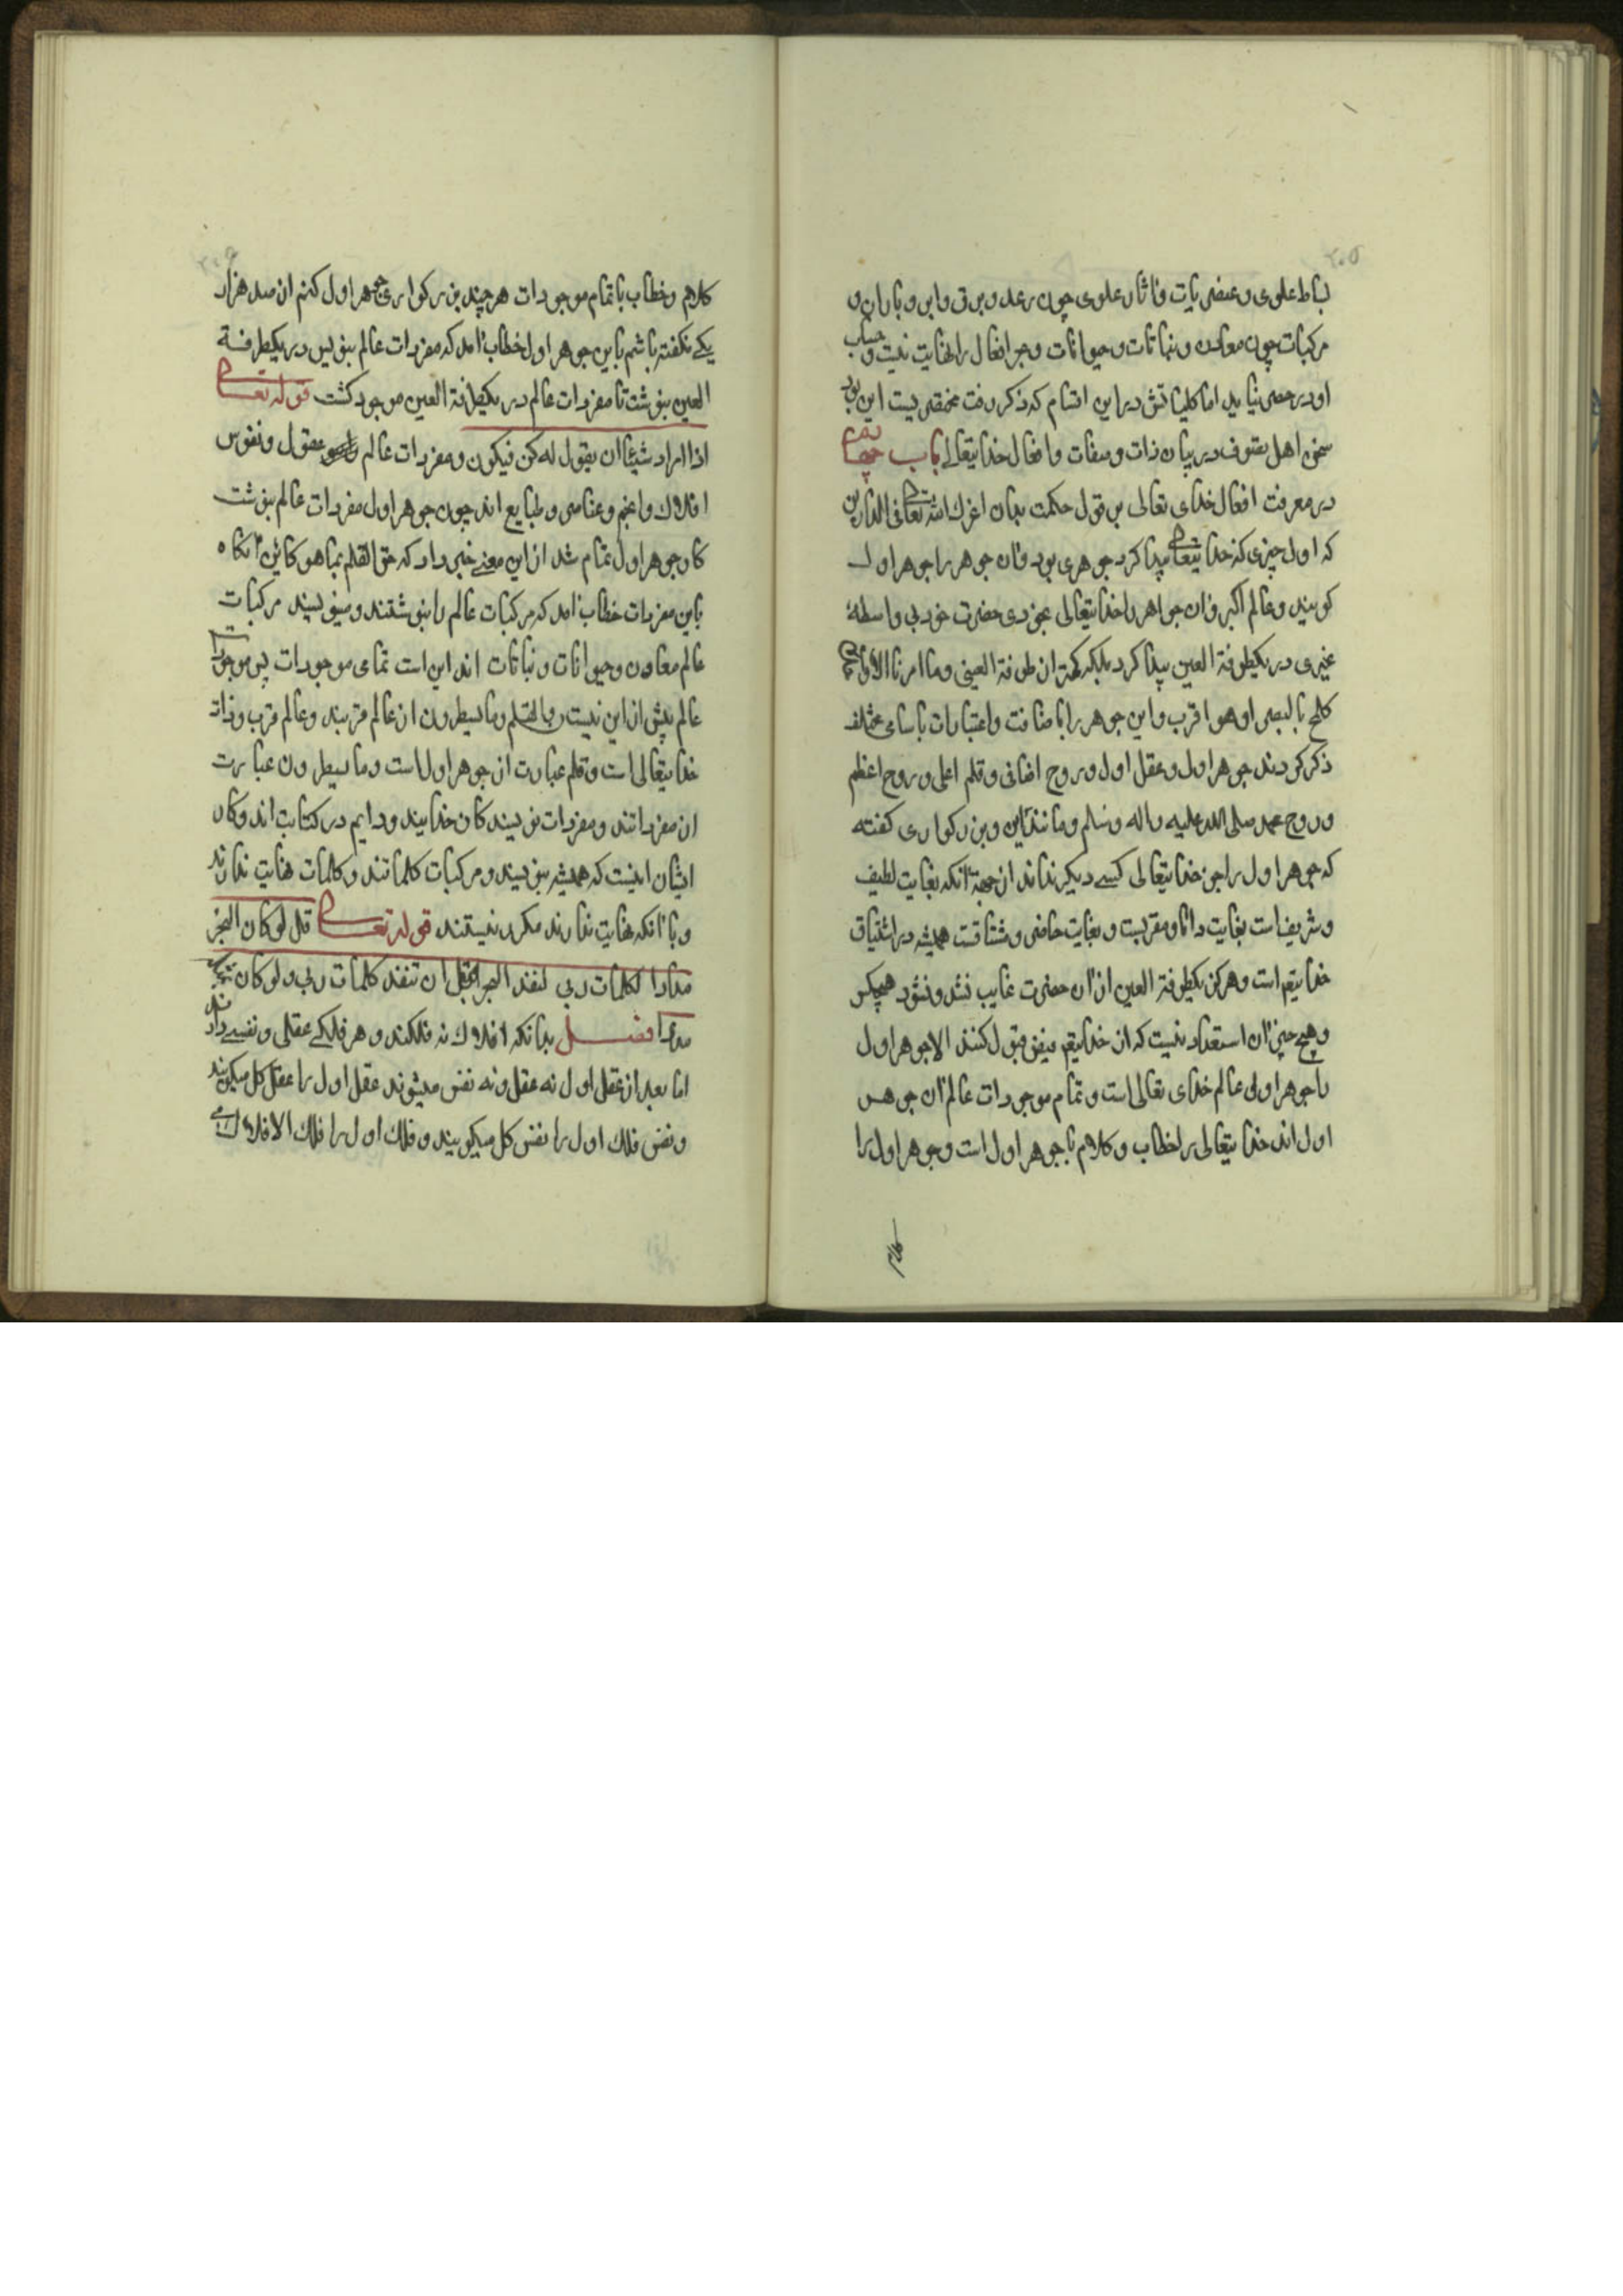 ۲۰۵
بساط علوی و عنصریات و اثار علوی چون رعد و برق و ابر و باران و
مرکبات چون معادن و نباتات و حیوانات و جز افعال را نهایت نیست و حساب
او در حصر نیاید اما کلیاتش در این اقسام که ذکر رفت منحصر یست این بود
سخن اهل تصوف در بیان ذات و صفات و افعال خدایتعالی باب
در معرفت افعال خدای تعالی بر قول حکمت بدان اعزك الله تعالی فی الدارین
که اول چیزی که خدایتعالی پیدا کرد جوهری بود و ان جوهر را جوهر اول
کویند و عالم اکبر و ان جواهر را خدایتعالی بخودی حضرت خود بی واسطهٔ
غیری در یکطرفة العین پیدا کرد بلکه کمتر از طرفة العینی و ما امرنا الا واحدة
کلمح بالبصر او هو اقرب و این جوهر را باضافت و اعتبارات باسامی مختلف
ذکر کردند جوهر اول و عقل اول و روح اضافی و قلم اعلی و روح اعظم
و روح محمد صلی الله علیه و اله و سلم و مانند این و بزرکواری کفته
که جوهر اول را جز خدایتعالی کسی دیکر نداند از جهة انکه بغایت لطیف
و شریف است بغایت دانا و مقربست و بغایت حاضر و مشتاقست همیشه در اشتیاق
خدایتعم است و هرکز یکطرفة العین از ان حضرت غایب نشد و نشود هیچکس
و هیچ چیز ان استعداد نیست که از خدایتعم فیض قبول کنند الا جوهر اول
با جوهر اولی عالم خدای تعالی است و تمام موجودات عالم ان جوهر
اول اند خدایتعالی را خطاب و کلام با جوهر اول است و جوهر اول را
کلام
کلام و خطاب با تمام موجودات هر چند بزرکواری جوهر اول کنم از صد هزار
یکی نکفته باشم باین جوهر اول خطاب امد که مفردات عالم بنویس در یکطرفة
العین بنوشت تا مفردات عالم در یکطرفة العین موجود کشت قوله تعالی
اذا اراد شیئا ان یقول له کن فیکون و مفردات عالم عقول و نفوس
افلاك و انجم و عناصر و طبایع اند چون جوهر اول مفردات عالم بنوشت
کار جوهر اول تمام شد از این معنی خبر داد که جف القلم بما هو کائن انکاه
باین مفردات خطاب امد که مرکبات عالم را بنوشتند و مینویسند مرکبات
عالم معادن و حیوانات و نباتات اند این است تمامی موجودات پس موجودات
عالم بیش از این نیست ن و القلم و ما یسطرون ان عالم قربند و عالم قرب و ذات
خدایتعالی است و قلم عبارت از جوهر اول است و ما یسطرون عبارت
از مفرداتند و مفردات نویسندکان خدایند و دایم در کتابت اند و کار
ایشان اینست که همیشه بنویسند و مرکبات کلماتند و کلمات نهایت ندارند
و با انکه نهایت ندارند مکرر نیستند قوله تعالی قل لو کان البحر
مدادا لکلمات ربی لنفد البحر قبل ان تنفد کلمات ربی ولو کان
مددا فصل بدانکه افلاك نه فلکند و هر فلکی عقلی و نفسی دارند
اما بعد از عقل اول نه عقل و نه نفس میشوند عقل اول را عقل کل میکویند
و نفس فلك اول را نفس کل میکویند و فلك اول را فلك الافلاك